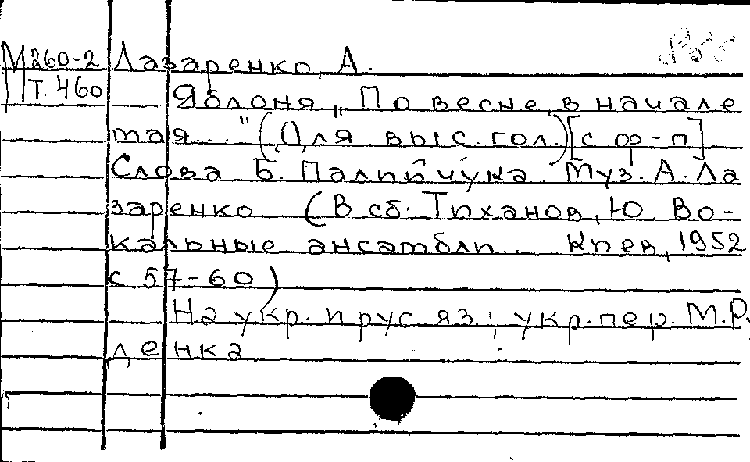 М260-2 Лазаренко, А.
Т.460 Яблоня „По весне, в начале
мая..." (Для выс. гол.) [с ф-п]
Слова Б. Палийчука. Муз. А. Ла
заренко (В сб. Тиханов, Ю. Во-
кальные ансамбли. Киев, 1952
с 57-60)
На укр. и рус яз; укр. пер. М. Р.
денка